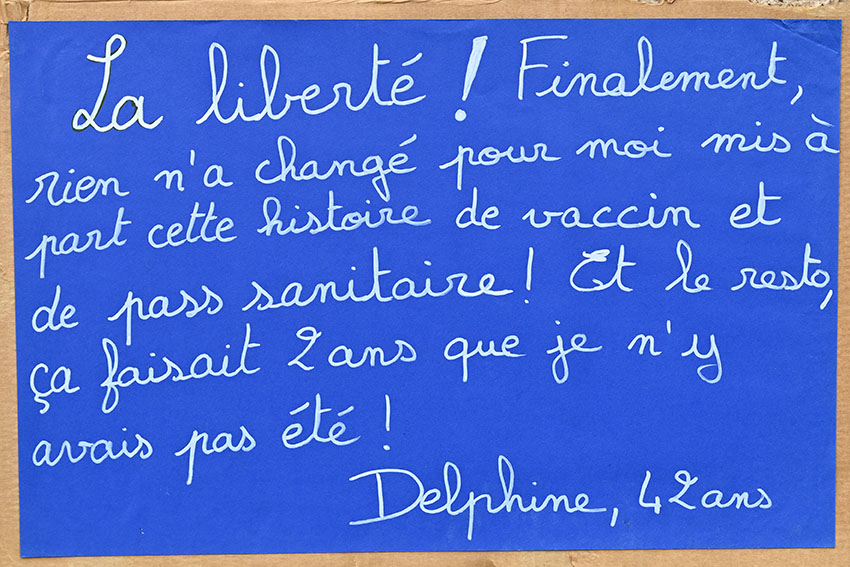 La liberté ! Finalement,
rien n'a changé pour moi mis à
part cette histoire de vaccin et
de pass sanitaire ! Et le resto,
ça faisait 2 ans que je n'y
avais pas été !
Delphine, 42 ans